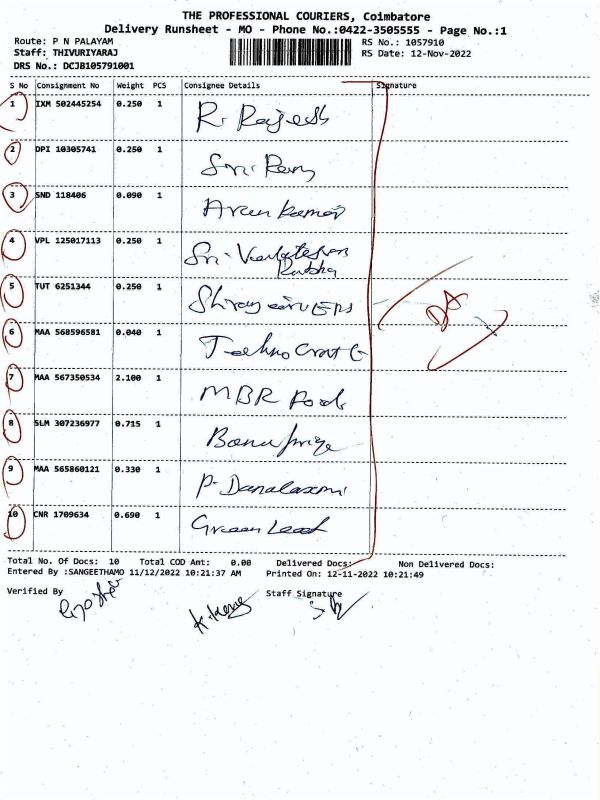 THE PROFESSIONAL COURIERS, Coimbatore
Delivery Runsheet - MO - Phone No.:0422-3505555 - Page No.:1
Route: P N PALAYAM RS No.: 1057910
Staff: THIVURIYARAJ RS Date: 12-Nov-2022
DRS No.: DCJB105791001
S No Consignment No Weight PCS Consignee Details Signature
1 IXM 502445254 0.250 1 R. Rajesh
2 DPI 10305741 0.250 1 Sri. Ram
3 SND 118406 0.090 1 Arun Kumar
4 VPL 125017113 0.250 1 Sri. Venkatesan
5 TUT 6251344 0.250 1
6 MAA 568596581 0.040 1 Techno Craft
7 MAA 567350534 2.100 1 MBR Foods
8 SLM 307236977 0.715 1
9 MAA 565860121 0.330 1 P. Danalaxmi
10 CNR 1709634 0.690 1 Green Leaf
Total No. Of Docs: 10 Total COD Amt: 0.00 Delivered Docs: Non Delivered Docs:
Entered By :SANGEETHAMO 11/12/2022 10:21:37 AM Printed On: 12-11-2022 10:21:49
Verified By Staff Signature